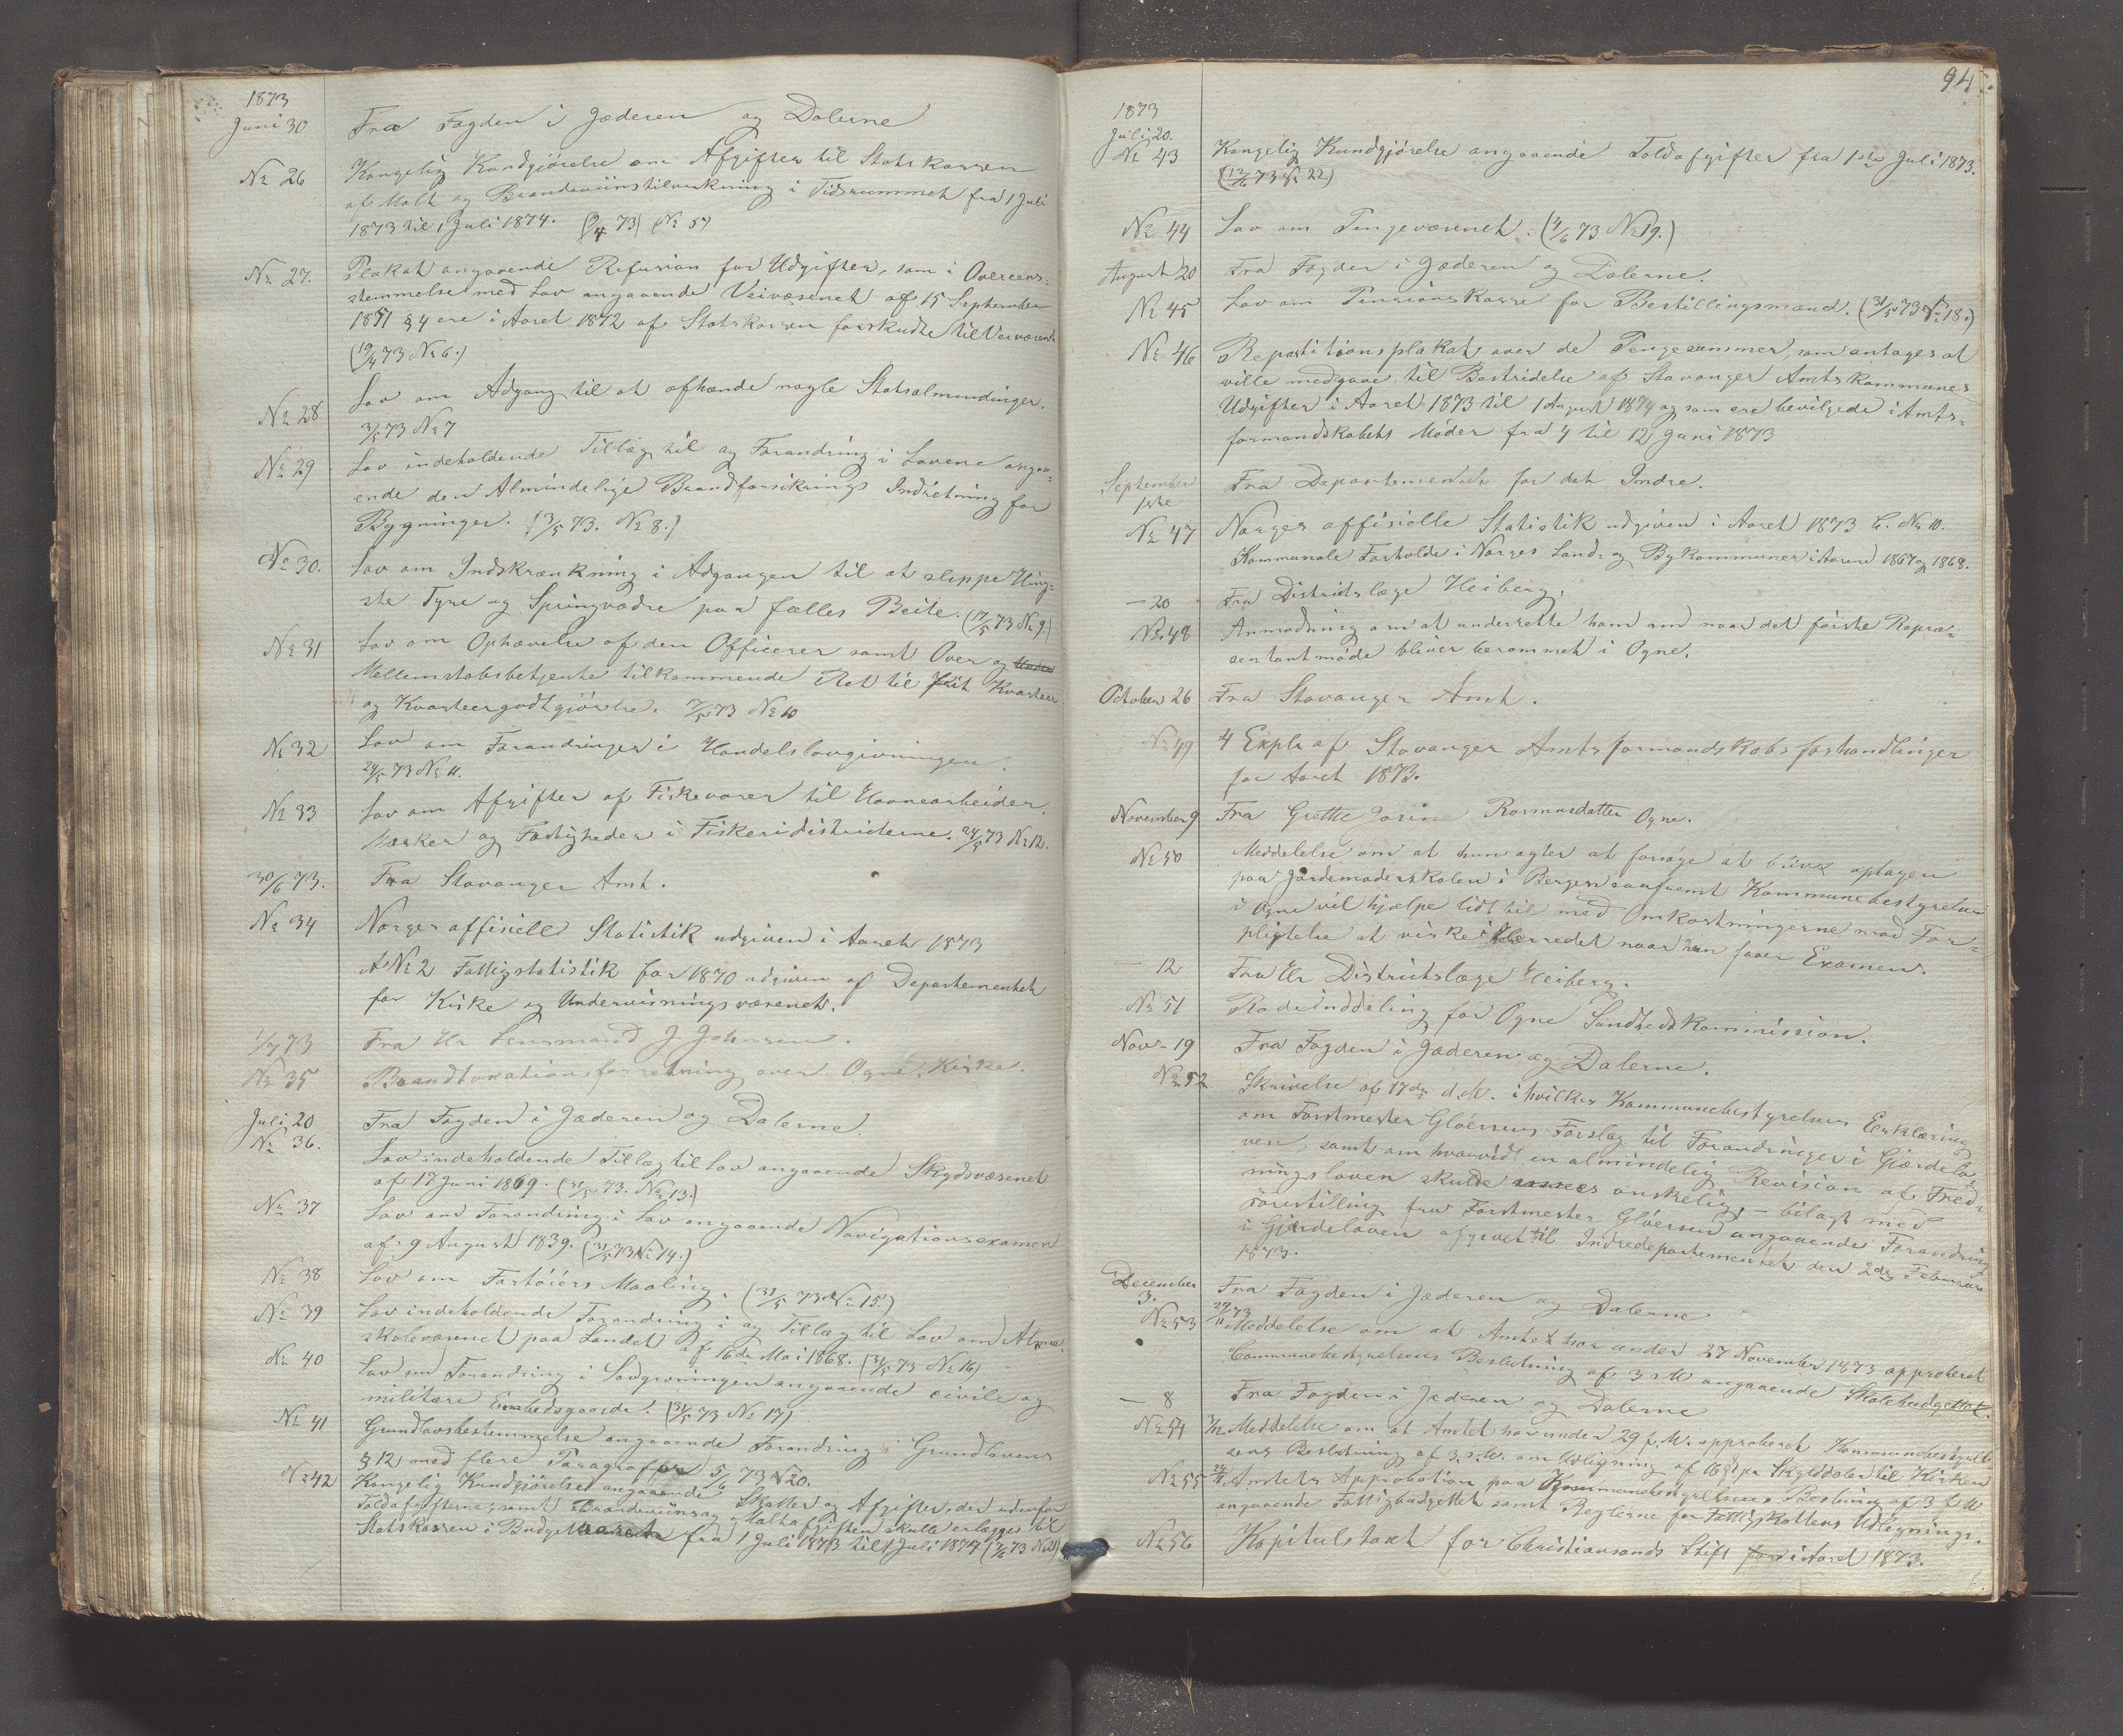 1873
Juni 30 Fra Fogden i Jæderen og Dalerne
No 26 Kongelig Kundgjørelse om Afgifter til Statskassen
af Malt og Brændeviinstilvirkning i Tidsrummet fra 1 Juli
1873 til 1 Juli 1874. (9/4 73) (No 5)
No 27. Plakat angaaende Refusion for Udgifter, som i Overeens-
stemmelse med Lov angaaende Veivæsenet af 15 September
1851 § 4 ere i Aaret 1872 af Statskassen forskudte til Veivæsenet
(19/4 73 No 6.)
No 28 Lov om Adgang til at afhænde nogle Statsalmindinger.
3/5 73 No 7
No 29 Lov indeholdende Tillæg til og Forandring i Lovene angaa-
ende den Almindelige Brandforsikrings Indretning for
Bygninger. (3/5 73. No 8.)
No 30. Lov om Indskrænkning i Adgangen til at slippe Hing-
ste Tyre og Springvædre paa fælles Beite. (17/5 73 No 9.)
No 31 Lov om Ophævelse af den Officerer samt Over og Under
Mellemstabsbetjente tilkommende Ret til frit Kvarteer
og Kvarteergodtgjørelse. 7/5 73 No 10
No 32 Lov om Forandringer i Handelslovgivningen.
24/5 73 No 11.
No 33 Lov om Afgifter af Fiskevarer til Havnearbeider
Mærker og Fastigheder i Fiskeridistricterne. 24/5 73 No 12.
30/6 73. Fra Stavanger Amt.
No 34 Norges officielle Statistik udgiven i Aaret 1873
A No 2 Fattigstatistik for 1870 udgiven af Departementet
for Kirke og Undervisningsvæsenet.
1/7 73 Fra Hr Lensmand J Johnsen.
No 35 Brandtaxationsforretning over Ogne Kirke.
Juli 20 Fra Fogden i Jæderen og Dalerne
No 36. Lov indeholdende Tillæg til Lov angaaende Skydsvæsenet
af 17 Juni 1869. (31/5 73. No 13.)
No 37 Lov om Forandring i Lov angaaende Navigationsexamen
af 9 August 1839. (31/5 73 No 14.)
No 38 Lov om Fartøiers Maaling. (31/5 73 No 15.)
No 39 Lov indeholdende Forandring i og Tillæg til Lov om Almue
skolevæsenet paa Landet af 16de Mai 1868. (31/5 73 No 16)
No 40 Lov om Forandring i Lovgivningen angaaende civile og
militære Embedsgaarde. (31/5 73 No 17)
No 41 Grundlovsbestemmelse angaaende Forandring i Grundlovens
§ 12 med flere Paragrafer 5/6 73 No 20.
No 42 Kongelig Kundgjørelse angaaende Skatter og Afgifter, der udenfor
Toldafgifterne samt Brændeviins og Maltafgiften skulle erlægges til
Statskassen i Budgetaaret fra 1 Juli 1873 til 1 Juli 1874 (7/6 73 No 21)
94.
1873
Juli 20.
No 43 Kongelig Kundgjørelse angaaende Toldafgifter fra 1ste Juli 1873.
(12/6 73 No 22)
No 44 Lov om Pengevæsenet. (4/6 73 No 19.)
August 20 Fra Fogden i Jæderen og Dalerne.
No 45 Lov om Pensionskasse for Bestillingsmænd. (31/5 73 No 18.)
No 46 Repartitionsplakat over de Pengesummer, som antages at
ville medgaae til Bestridelse af Stavanger Amtskommunes
Udgifter i Aaret 1873 til 1 August 1874 og som ere bevilgede i Amts-
formandskabets Møder fra 4 til 12 Juni 1873
September
1ste Fra Departementet for det Indre.
No 47 Norges officielle Statistik udgiven i Aaret 1873 C. No 10.
Kommunale Forholde i Norges Land- og Bykommuner i Aarene 1867 og 1868.
— 20 Fra Districtslæge Heiberg.
No 48 Anmodning om at underrette ham om naar det første Repræ-
sentantmøde bliver berammet i Ogne.
October 26 Fra Stavanger Amt.
No 49 4 Explr af Stavanger Amtsformandskabs forhandlinger
for Aaret 1873.
November 9 Fra Grethe Jorine Rasmusdatter Ogne.
No 50 Meddelelse om at hun agter at forsøge at blive optagen
paa Jordemoderskolen i Bergen saafremt Kommunebestyrelsen
i Ogne vil hjælpe lidt til med Omkostningerne mod For-
pligtelse at virke i Herredet naar hun faaer Examen.
— 12 Fra Hr Districtslæge Heiberg.
No 51 Rodeinddeling for Ogne Sundhedskommission.
Nov- 19 Fra Fogden i Jæderen og Dalerne.
No 52 Skrivelse af 17de d.M. i hvilken Kommunebestyrelsens Erklæring
om Forstmester Gløersens Forslag til Forandringer i Gjærdelo-
ven, samt om hvorvidt en almindelig Revision af Fred-
ningsloven skulde ansees ønskelig, — bilagt med
Forestilling fra Forstmester Gløersen angaaende Forandring
i Gjærdeloven afgivet til Indredepartementet den 2den Februar
1873.
December
3. Fra Fogden i Jæderen og Dalerne
No 53 29/11 73 Meddelelse om at Amtet har under 27 November 1873 approberet
Communebestyrelsens Beslutning af 3 s.M angaaende Skolebudgettet.
— 8 Fra Fogden i Jæderen og Dalerne
No 54 3/12 Meddelelse om at Amtet har under 29 f.M. approberet Kommunebestyrel-
sens Beslutning af 3 s.M. om Udligning af 16 ß pr Skylddaler til Kirken
No 55 29/11 Amtets Approbation paa Kommunebestyrelsens Beslutning af 3 f M
angaaende Fattigbudgettet samt Reglerne for Fattigskattens Udligning.
No 56 Kapitulstaxt for Christiansands Stift for i Aaret 1873.